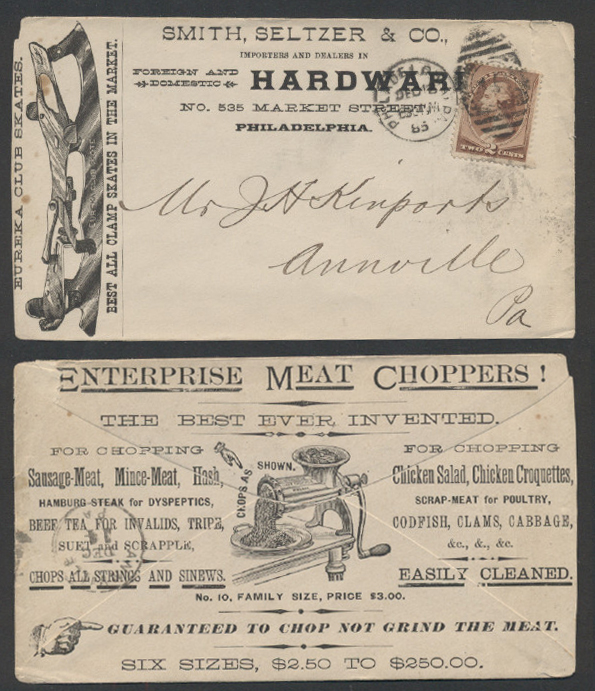 SMITH, SELTZER & CO.,
IMPORTERS AND DEALERS IN
FOREIGN AND
DOMESTIC
HARDWARE
No. 535 MARKET STREET,
PHILADELPHIA.
EUREKA CLUB SKATES.
BEST ALL CLAMP SKATES IN THE MARKET.
PHILADELPHIA
DEC
TWO 2 CENTS
Mr J H Kinports
Annville
Pa
ENTERPRISE MEAT CHOPPERS!
THE BEST EVER INVENTED.
FOR CHOPPING
Sausage-Meat, Mince-Meat, Hash,
HAMBURG STEAK for DYSPEPTICS,
BEEF TEA FOR INVALIDS, TRIPE,
SUET and SCRAPPLE,
CHOPS ALL STRINGS AND SINEWS.
CHOPS AS SHOWN.
FOR CHOPPING
Chicken Salad, Chicken Croquettes,
SCRAP-MEAT for POULTRY,
CODFISH, CLAMS, CABBAGE,
&c., &., &c.
EASILY CLEANED.
No. 10, FAMILY SIZE, PRICE $3.00.
GUARANTEED TO CHOP NOT GRIND THE MEAT.
SIX SIZES, $2.50 TO $250.00.